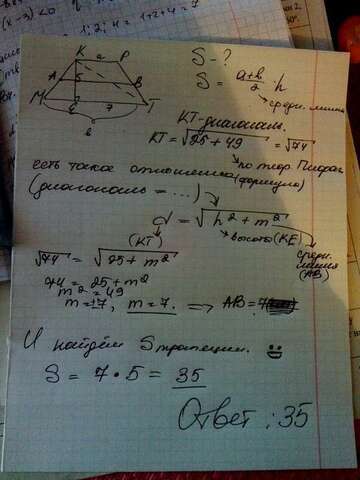 1; 2; 4 = 1+2+4 = 7
K a P
A 5 B
M E 7 T
b
S - ?
S = a+b/2 · h
средн. линия
KT - диагональ.
KT = √25 + 49 = √74
по теор. Пифаг
есть такое отношение (формула)
(диагональ = ...)
d = √h² + m²
(KT)
высота (KE)
средн. линия (AB)
√74 = √25 + m²
74 = 25 + m²
m² = 49
m = ±7, m = 7. ⟹ AB = 7
И найдём S трапеции.
S = 7 · 5 = 35
Ответ: 35